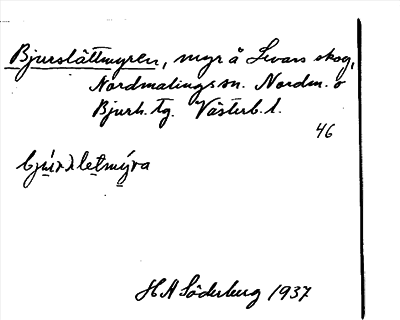 Bjurslåttmyren, myr å Levars skog,
Nordmalings sn. Nordm. o
Bjurh. tg. Västerb. l.
46
H A Söderberg 1937